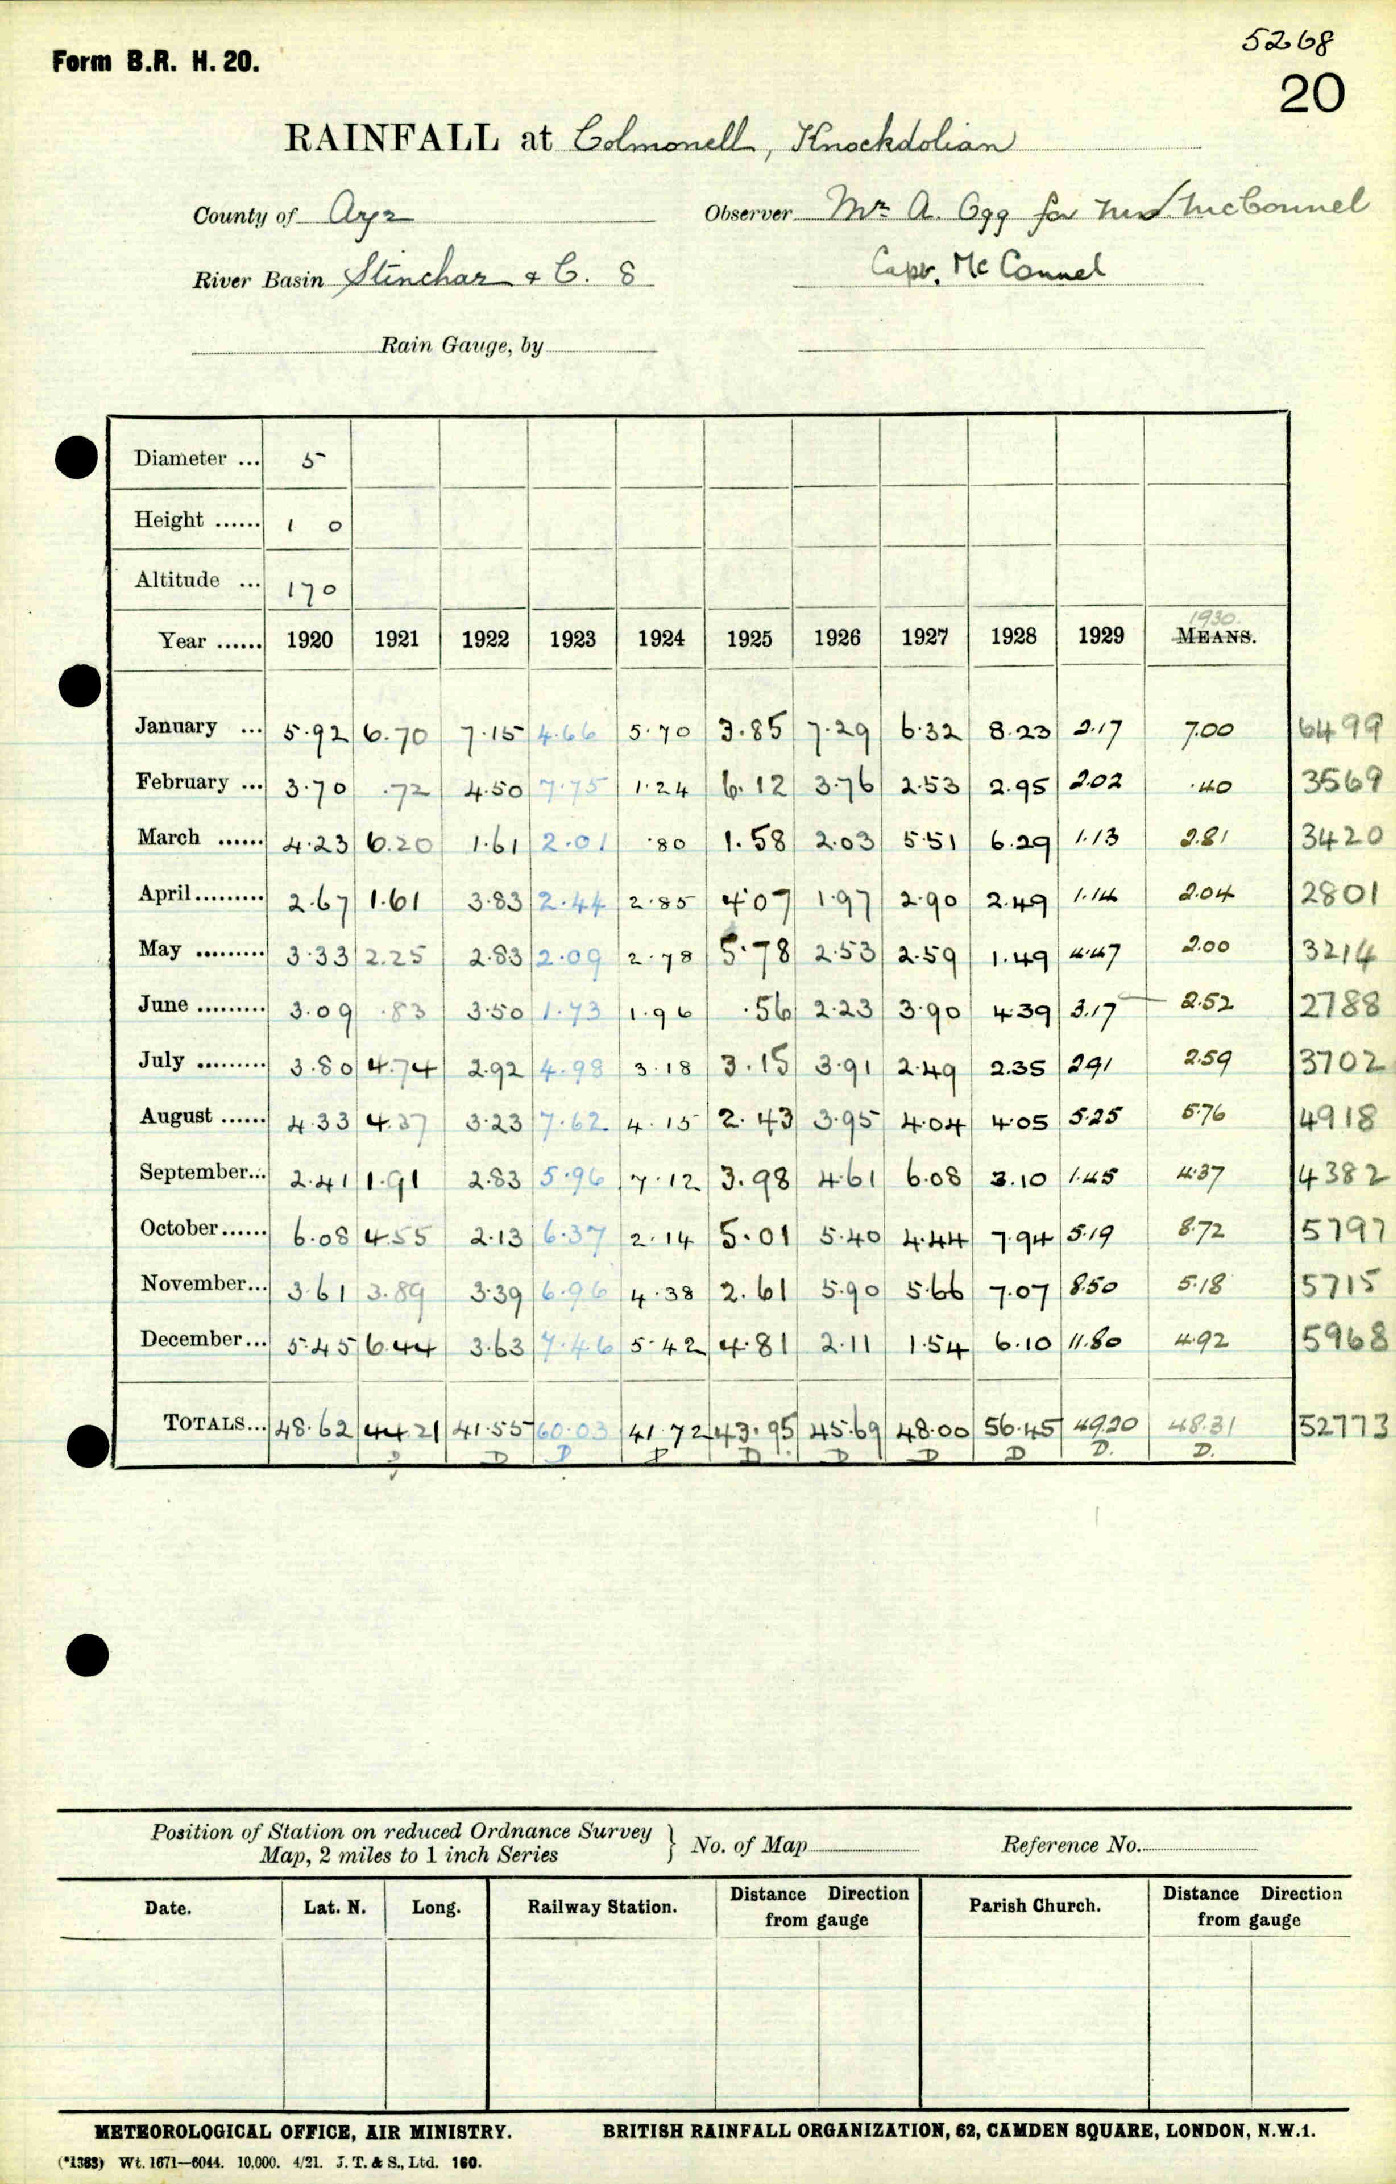 5268
Form B.R. H. 20.
20
RAINFALL at Colmonell, Knockdolian
County of Ayr Observer Mr A. Ogg for McConnel
River Basin Stinchar & C. 8 Capt. McConnel
Rain Gauge, by
Diameter ... 5
Height ...... 1 0
Altitude ... 170
1930.
Year ...... 1920 1921 1922 1923 1924 1925 1926 1927 1928 1929 MEANS.
January ... 5.92 6.70 7.15 4.66 5.70 3.85 7.29 6.32 8.23 2.17 7.00 6499
February ... 3.70 .72 4.50 7.75 1.24 6.12 3.76 2.53 2.95 2.02 .40 3569
March ...... 4.23 6.20 1.61 2.01 .80 1.58 2.03 5.51 6.29 1.13 2.81 3420
April ......... 2.67 1.61 3.83 2.44 2.85 4.07 1.97 2.90 2.49 1.14 2.04 2801
May ......... 3.33 2.25 2.83 2.09 2.78 5.78 2.53 2.59 1.49 4.47 2.00 3214
June ......... 3.09 .83 3.50 1.73 1.96 .56 2.23 3.90 4.39 3.17 2.52 2788
July ......... 3.80 4.74 2.92 4.98 3.18 3.15 3.91 2.49 2.35 2.91 2.59 3702
August ...... 4.33 4.37 3.23 7.62 4.15 2.43 3.95 4.04 4.05 5.25 5.76 4918
September... 2.41 1.91 2.83 5.96 7.12 3.98 4.61 6.08 3.10 1.45 4.37 4382
October...... 6.08 4.55 2.13 6.37 2.14 5.01 5.40 4.44 7.94 5.19 8.72 5797
November... 3.61 3.89 3.39 6.96 4.38 2.61 5.90 5.66 7.07 8.50 5.18 5715
December... 5.45 6.44 3.63 7.46 5.42 4.81 2.11 1.54 6.10 11.80 4.92 5968
TOTALS... 48.62 44.21 41.55 60.03 41.72 43.95 45.69 48.00 56.45 49.20 48.31 52773
D D D D D D D D D. D.
Position of Station on reduced Ordnance Survey
Map, 2 miles to 1 inch Series } No. of Map Reference No.
Date. Lat. N. Long. Railway Station. Distance Direction from gauge Parish Church. Distance Direction from gauge
METEOROLOGICAL OFFICE, AIR MINISTRY. BRITISH RAINFALL ORGANIZATION, 62, CAMDEN SQUARE, LONDON, N.W.1.
(*1383) Wt. 1671—6044. 10,000. 4/21. J. T. & S., Ltd. 160.